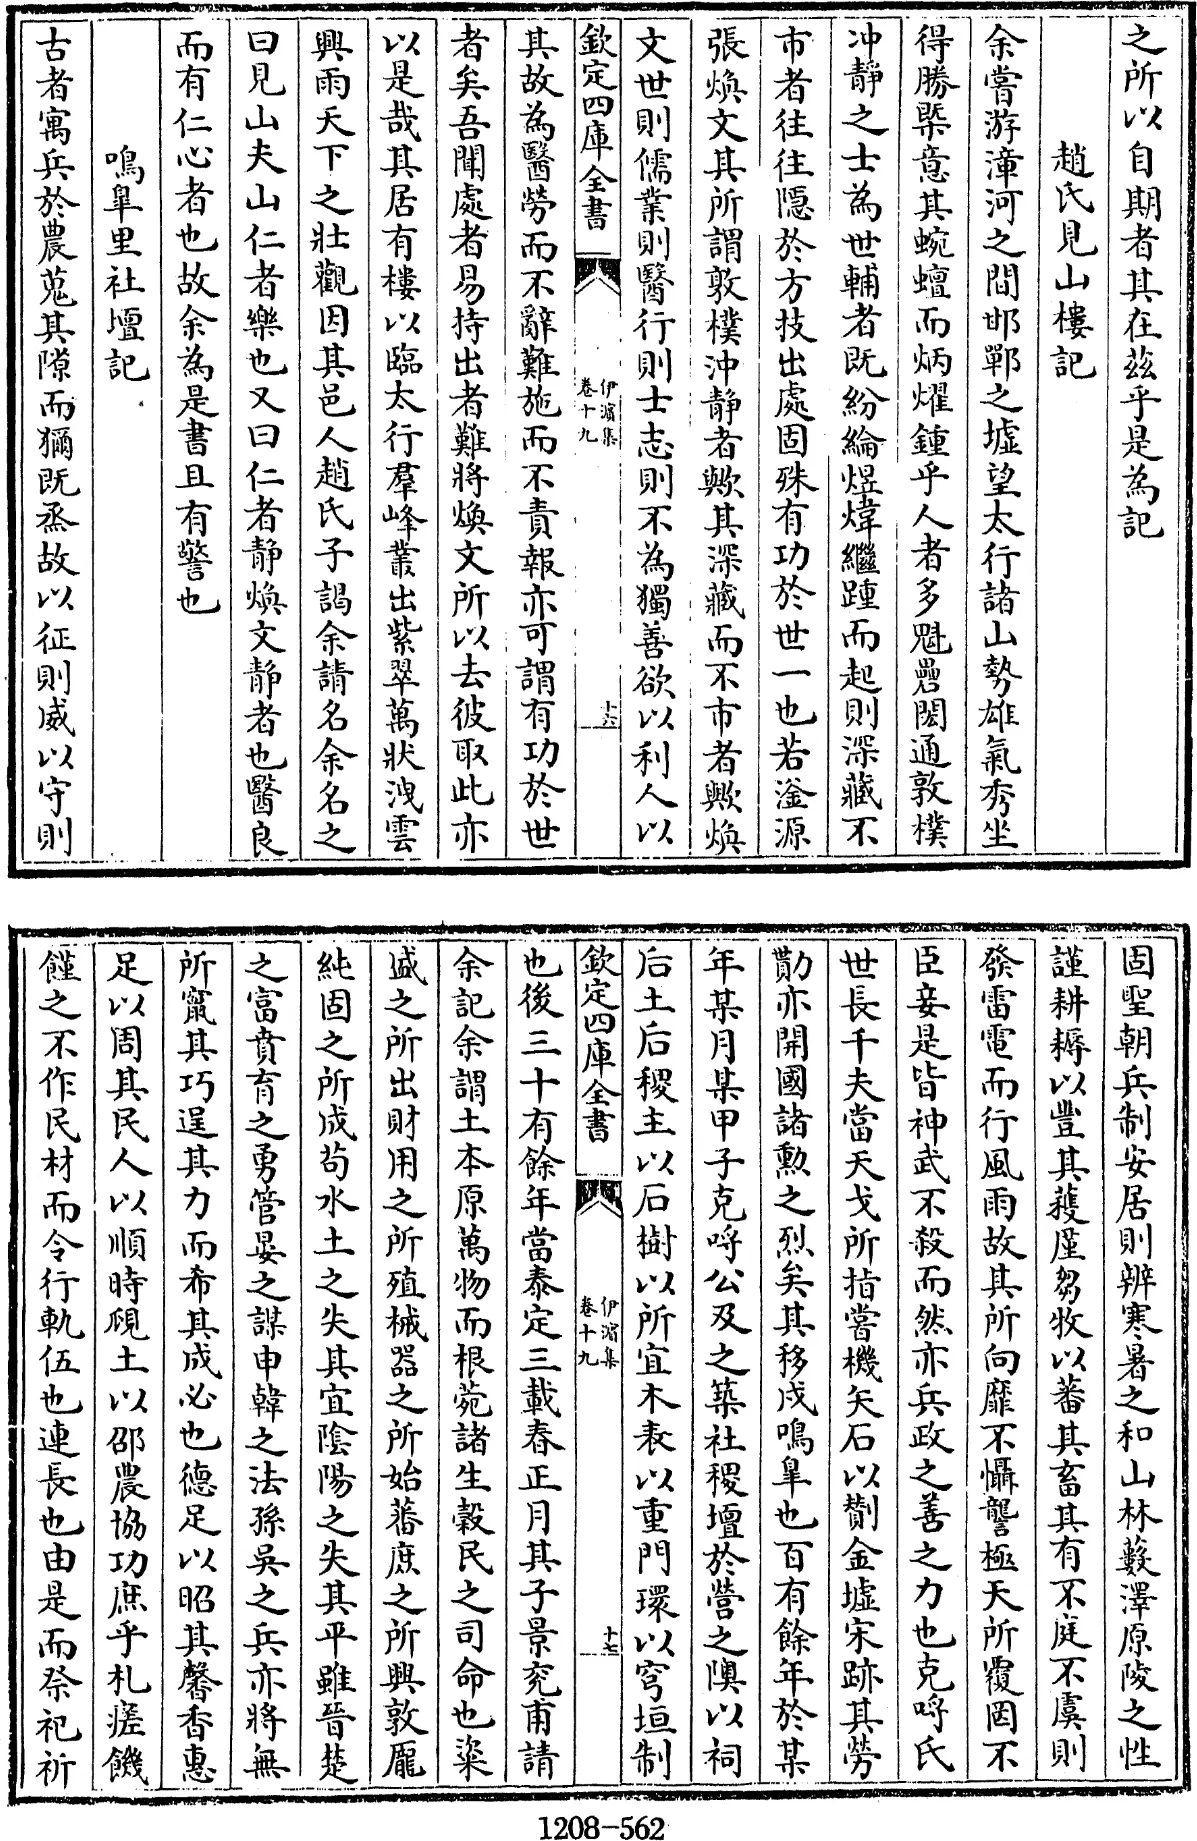 之所以自期者其在茲乎是為記
趙氏見山樓記
余嘗游漳河之間邯鄲之墟望太行諸山勢雄氣秀坐
得勝槩意其蜿蟺而炳燿鍾乎人者多魁礨閎通敦樸
冲靜之士為世輔者既紛綸煜煒繼踵而起則深藏不
市者往往隱於方技出處固殊有功於世一也若滏源
張煥文其所謂敦樸沖靜者歟其深藏而不市者歟煥
文世則儒業則醫行則士志則不為獨善欲以利人以
欽定四庫全書
伊濱集
卷十九
十六
其故為醫勞而不辭難施而不責報亦可謂有功於世
者矣吾聞處者易持出者難將煥文所以去彼取此亦
以是哉其居有樓以臨太行羣峰叢出紫翠萬狀洩雲
興雨天下之壯觀因其邑人趙氏子謁余請名余名之
曰見山夫山仁者樂也又曰仁者靜煥文靜者也醫良
而有仁心者也故余為是書且有警也
鳴臯里社壇記
古者寓兵於農蒐其隙而獮既烝故以征則威以守則
固聖朝兵制安居則辨寒暑之和山林藪澤原陵之性
謹耕耨以豐其穫厪芻牧以蕃其畜其有不庭不虞則
發雷電而行風雨故其所向靡不懾讋極天所覆罔不
臣妾是皆神武不殺而然亦兵政之善之力也克呼氏
世長千夫當天戈所指嘗機矢石以劗金墟宋跡其勞
勩亦開國諸勲之烈矣其移戍鳴臯也百有餘年於某
年某月某甲子克呼公及之築社稷壇於營之隩以祠
后土后稷主以石樹以所宜木表以重門環以穹垣制
欽定四庫全書
伊濱集
卷十九
十七
也後三十有餘年當泰定三載春正月其子景兗甫請
余記余謂土本原萬物而根菀諸生穀民之司命也粢
盛之所出財用之所殖械器之所始蕃庶之所興敦厖
純固之所成苟水土之失其宜陰陽之失其平雖晉楚
之富賁育之勇管晏之謀申韓之法孫吳之兵亦將無
所竄其巧逞其力而希其成必也德足以昭其馨香惠
足以周其民人以順時覛土以卲農協功庶乎札瘥饑
饉之不作民材而令行軌伍也連長也由是而祭祀祈
1208-562